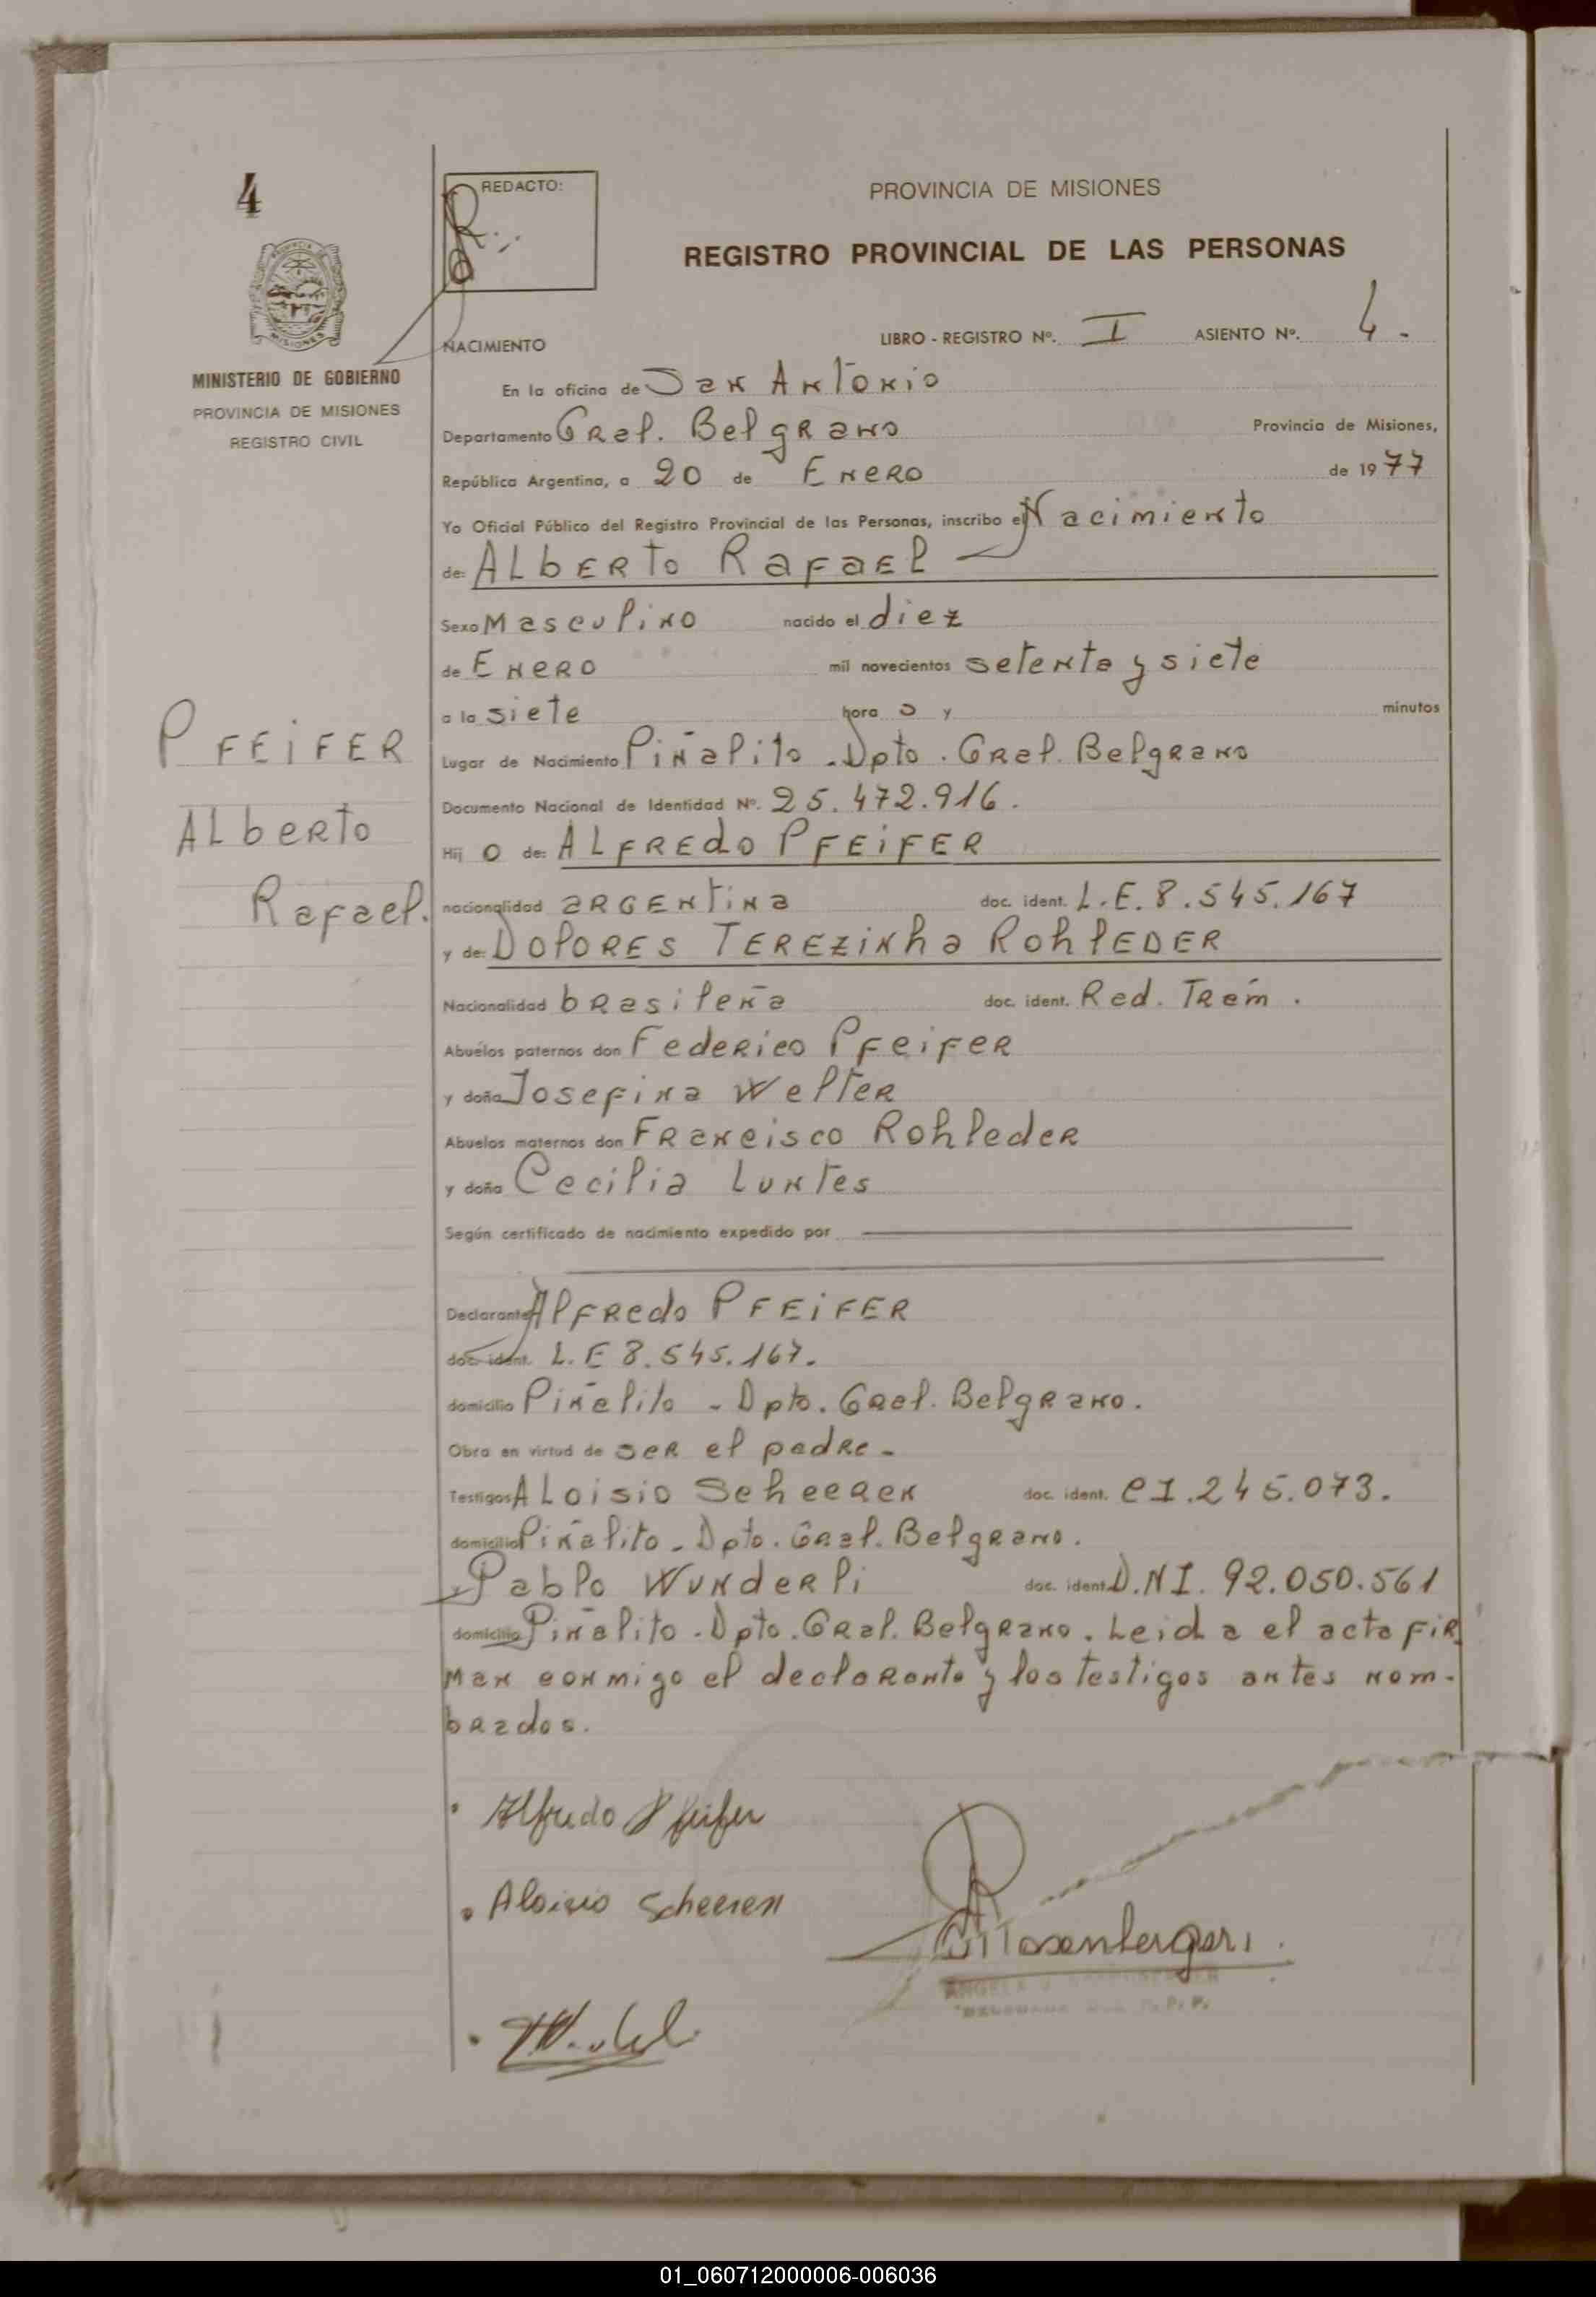 4
REDACTO:
PROVINCIA DE MISIONES
REGISTRO PROVINCIAL DE LAS PERSONAS
MINISTERIO DE GOBIERNO
PROVINCIA DE MISIONES
REGISTRO CIVIL
NACIMIENTO
LIBRO - REGISTRO Nº. I ASIENTO Nº. 4.-
En la oficina de San Antonio
Departamento Gral. Belgrano Provincia de Misiones,
República Argentina, a 20 de Enero de 1977
Yo Oficial Público del Registro Provincial de las Personas, inscribo el Nacimiento
de: ALbERTo RaFaEl
Sexo Masculino nacido el diez
de Enero mil novecientos setenta y siete
a la siete hora s y minutos
Lugar de Nacimiento Piñalito - Dpto. Gral. Belgrano
Documento Nacional de Identidad Nº. 25.472.916.
PFEiFER
ALberto
Rafael.
Hij o de: ALFREdo PFEiFER
nacionalidad argentina doc. ident. L.E. 8.545.167
y de: DoloRES TEREZinha RohlEDER
Nacionalidad brasileña doc. ident. Red. Trám.
Abuelos paternos don Federico Pfeifer
y doña Josefina Welter
Abuelos maternos don Francisco Rohleder
y doña Cecilia Luntes
Según certificado de nacimiento expedido por
Declarante Alfredo PFEiFER
doc. ident. L.E 8.545.167.
domicilio Piñalito - Dpto. Gral. Belgrano.
Obra en virtud de ser el padre -
Testigos ALoisio Scheeren doc. ident. CI. 245.073.
domicilio Piñalito - Dpto. Gral. Belgrano.
y Pablo Wunderli doc. ident. D.N.I. 92.050.561
domicilio Piñalito - Dpto. Gral. Belgrano. Leida el acta fir
man conmigo el declarante y los testigos antes nom-
brados.
Alfredo Pfeifer
Aloisio Scheeren
01_060712000006-006036